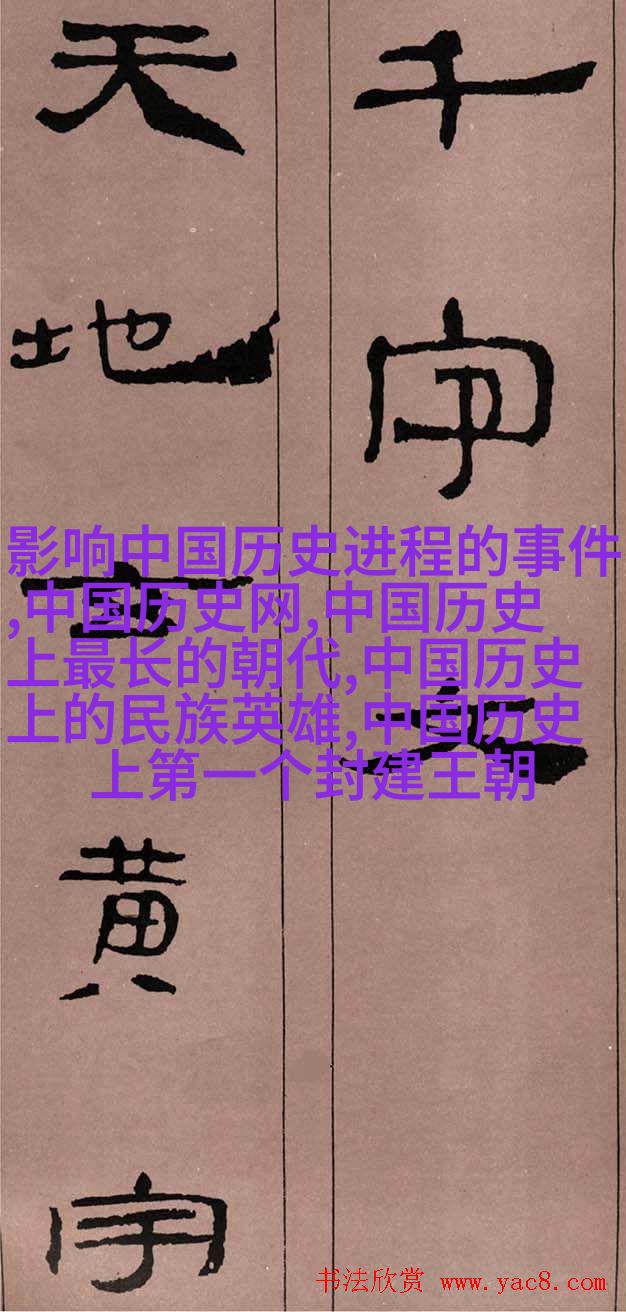 千字文
天地玄黄宇
影响中国历史进程的事件
,中国历史网,中国历史
上最长的朝代,中国历史
上的民族英雄,中国历史
上第一个封建王朝
书法欣赏 www.yac8.com